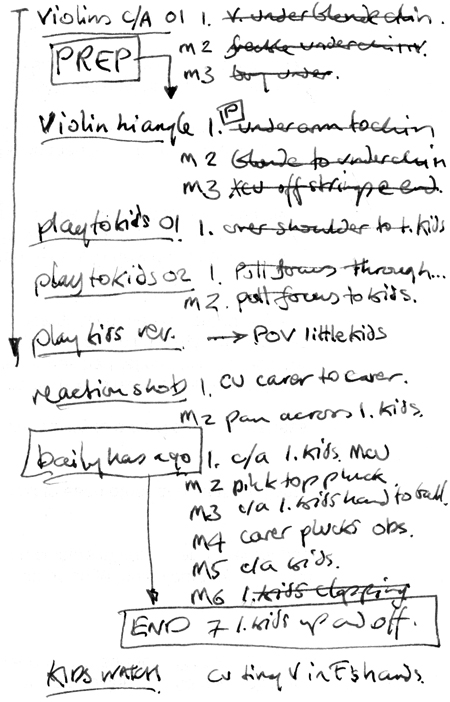 Violins c/A 01 1. v. under blonde chin.
PREP
M2 freckle under chin.
M3 boy under.
Violin triangle 1. P under arm to chin
M2 Blonde to under chin
M3 XCU off string @ end.
play to kids 01 1. over shoulder to t. kids
play to kids 02 1. Pull focus through...
M2. pull focus to kids.
play kids rev. → POV little kids
reaction shots 1. CU carer to carer.
M2 pan across l. kids.
Daily has a go 1. c/a l. kids. MCU
M2 pink top pluck.
M3 c/a l. kids hand to
M4 carer plucks obs.
M5 c/a kids.
M6 l. kids clapping
END 7 l. kids up and off.
KIDS WATCH CU tiny V in F's hands.